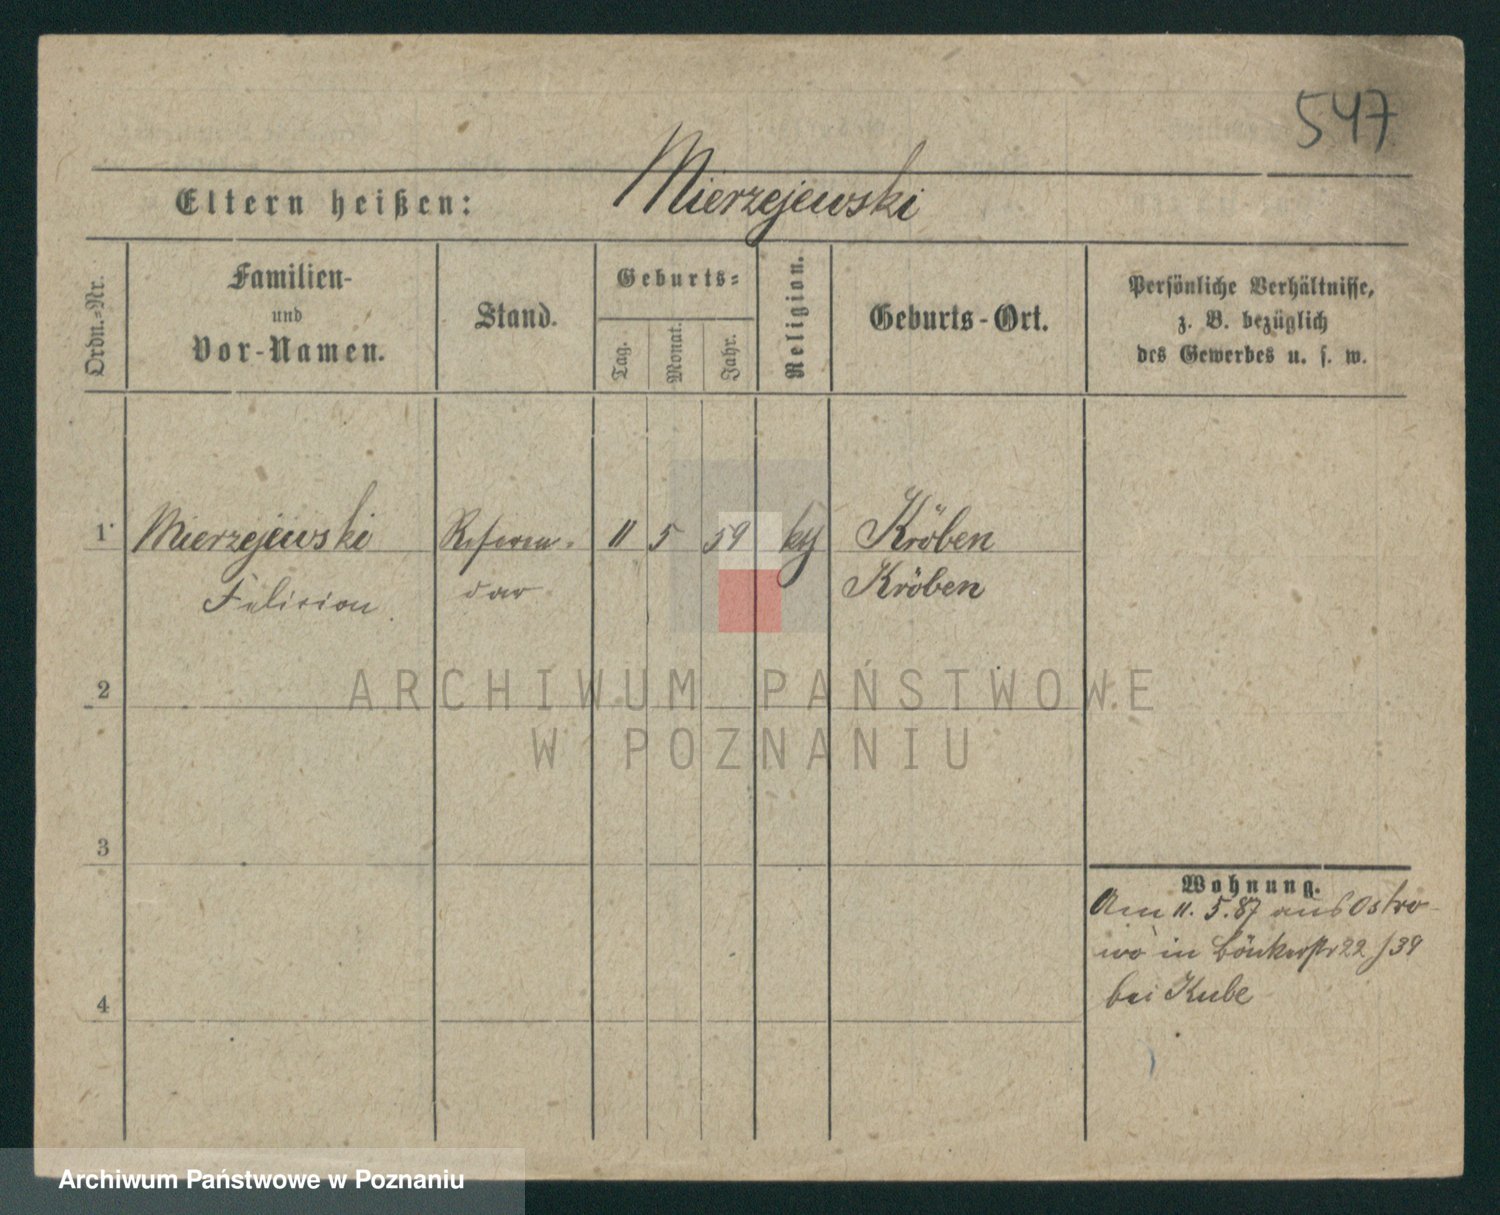 547
Eltern heißen: Mierzejewski
Ordn.-Nr.
Familien-
und
Vor-Namen.
Stand.
Geburts-
Tag.
Monat.
Jahr.
Religion.
Geburts-Ort.
Persönliche Verhältnisse,
z. B. bezüglich
des Gewerbes u. s. w.
1 Mierzejewski Referen- 11 5 59 Kröben
Felicion dar Kröben
ARCHIWUM PAŃSTWOWE
W POZNANIU
2
3
4
Wohnung.
Am 11. 5. 87 aus Ostro-
wo in 22/39
bei Kube
Archiwum Państwowe w Poznaniu